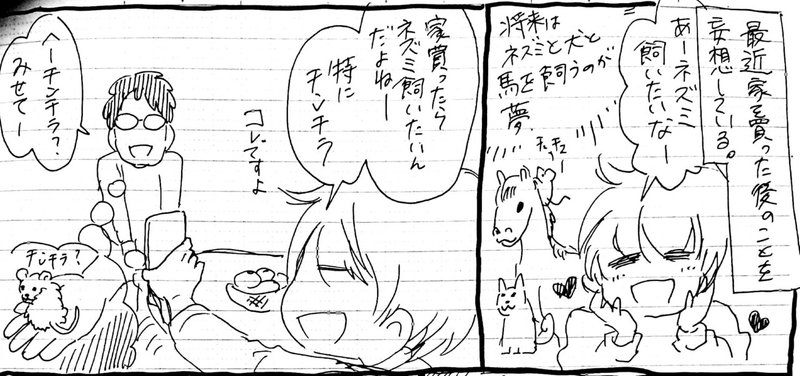 最近家買った後のことを
妄想している。
あーネズミ
飼いたいなー
将来は
ネズミと犬と
馬を飼うのが
夢
チュッチュー
家買ったら
ネズミ飼いたいん
だよねー
特に
チンチラ
コレですよ
へーチンチラ?
みせてー
チンチラ?